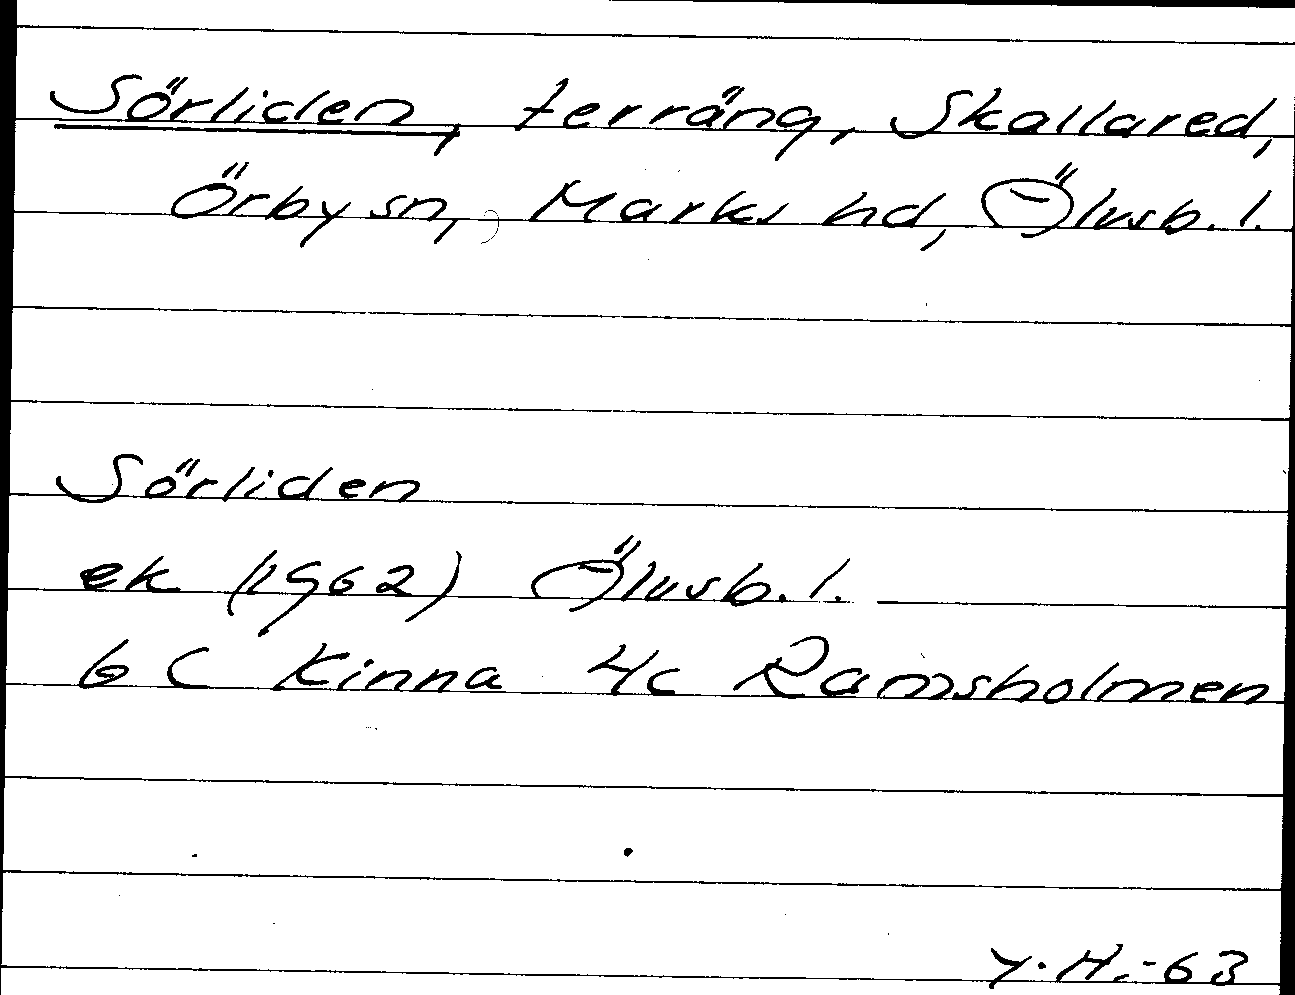 Sörliden, terräng, Skallared,
Örby sn, Marks hd, Älvsb. l.
Sörliden
ek (1962) Älvsb. l.
6 C Kinna 4c Ramsholmen
Y. H. -63